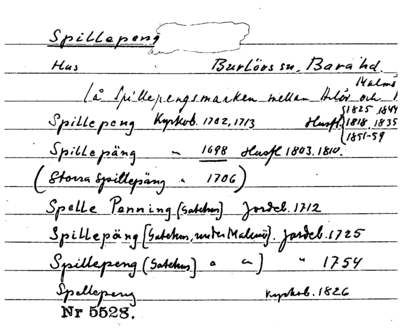 Spillepeng
Hus Burlövs sn, Bara hd.
(å Spillepengsmarken mellan Arlöv och Malmö)
Spillepeng Kyrkob. 1702, 1713 Husfl. 1818, 1825, 1835, 1844, 1851-59
Spillepäng " 1698 Husfl 1803. 1810.
(Storra Spillepäng " 1706)
Spelle Penning (Gatehus) Jordeb. 1712
Spillepäng [Gatehus, under Malmö]. Jordeb. 1725
Spillepeng (Gatehus) " " ) " 1754
Spellepeng Kyrkob. 1826
Nr 5528.